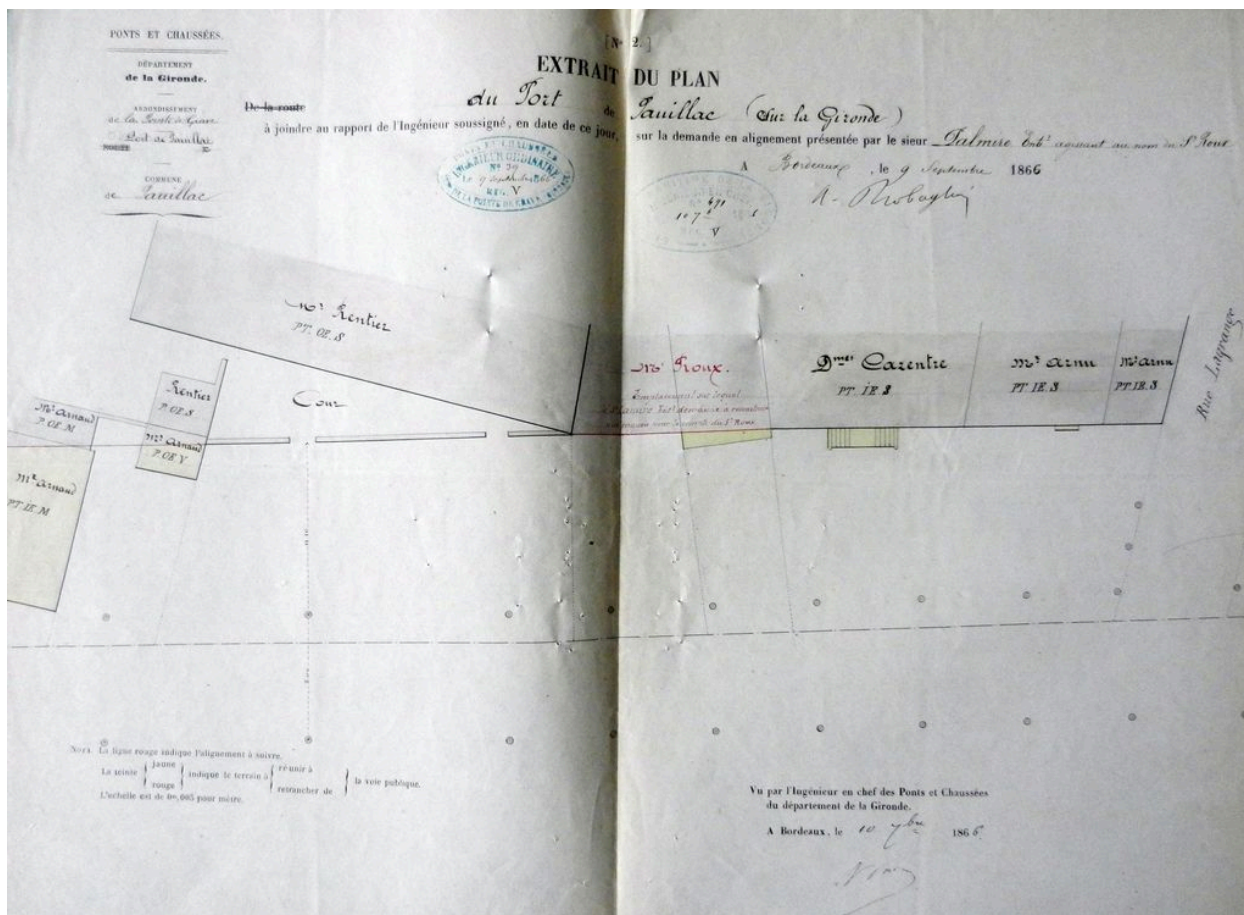 PONTS ET CHAUSSÉES.
DÉPARTEMENT
de la Gironde.
ARRONDISSEMENT
de la Pointe de Grave
Port de Pauillac
COMMUNE
de Pauillac
[N° 2.]
EXTRAIT DU PLAN
De la route du Port de Pauillac (sur la Gironde)
à joindre au rapport de l'Ingénieur soussigné, en date de ce jour, sur la demande en alignement présentée par le sieur Dalmire Entr agissant au nom du Sr Roux
A Bordeaux, le 9 Septembre 1866
PONTS ET CHAUSSÉES
INGÉNIEUR ORDINAIRE
N° 39
Le 9 Septembre 1866
REG. V
DE LA POINTE DE GRAVE
N° 491
REG. V
Mr Rentier
PT. OE. S
Rentier
P. OE. S
Cour
Mr Arnaud
P. OE. M
Mr Arnaud
P. OE. V
Mr Arnaud
PT. IE. M
Mr Roux.
Emplacement sur lequel
Dmes Carentre
PT. IE. S
Mr Arnu
PT. IE. S
Mr Arnu
PT. IE. S
Rue Lagrange
NOTA. La ligne rouge indique l'alignement à suivre.
La teinte { jaune rouge } indique le terrain à { réunir à retrancher de } la voie publique.
L'échelle est de 0m,005 pour mètre.
Vu par l'Ingénieur en chef des Ponts et Chaussées
du département de la Gironde.
A Bordeaux, le 10 7bre 1866.